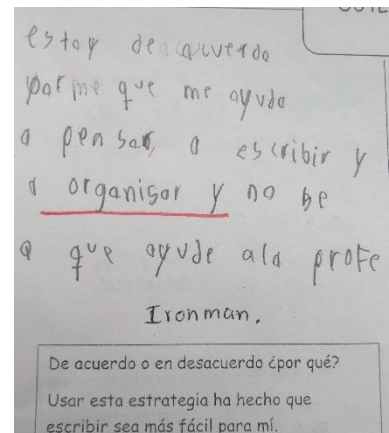 estoy deacuverdo
porme que me ayuda
a pensar, a escribir y
a organisar y no be
a que ayude ala profe
Ironman.
De acuerdo o en desacuerdo ¿por qué?
Usar esta estrategia ha hecho que
escribir sea más fácil para mí.